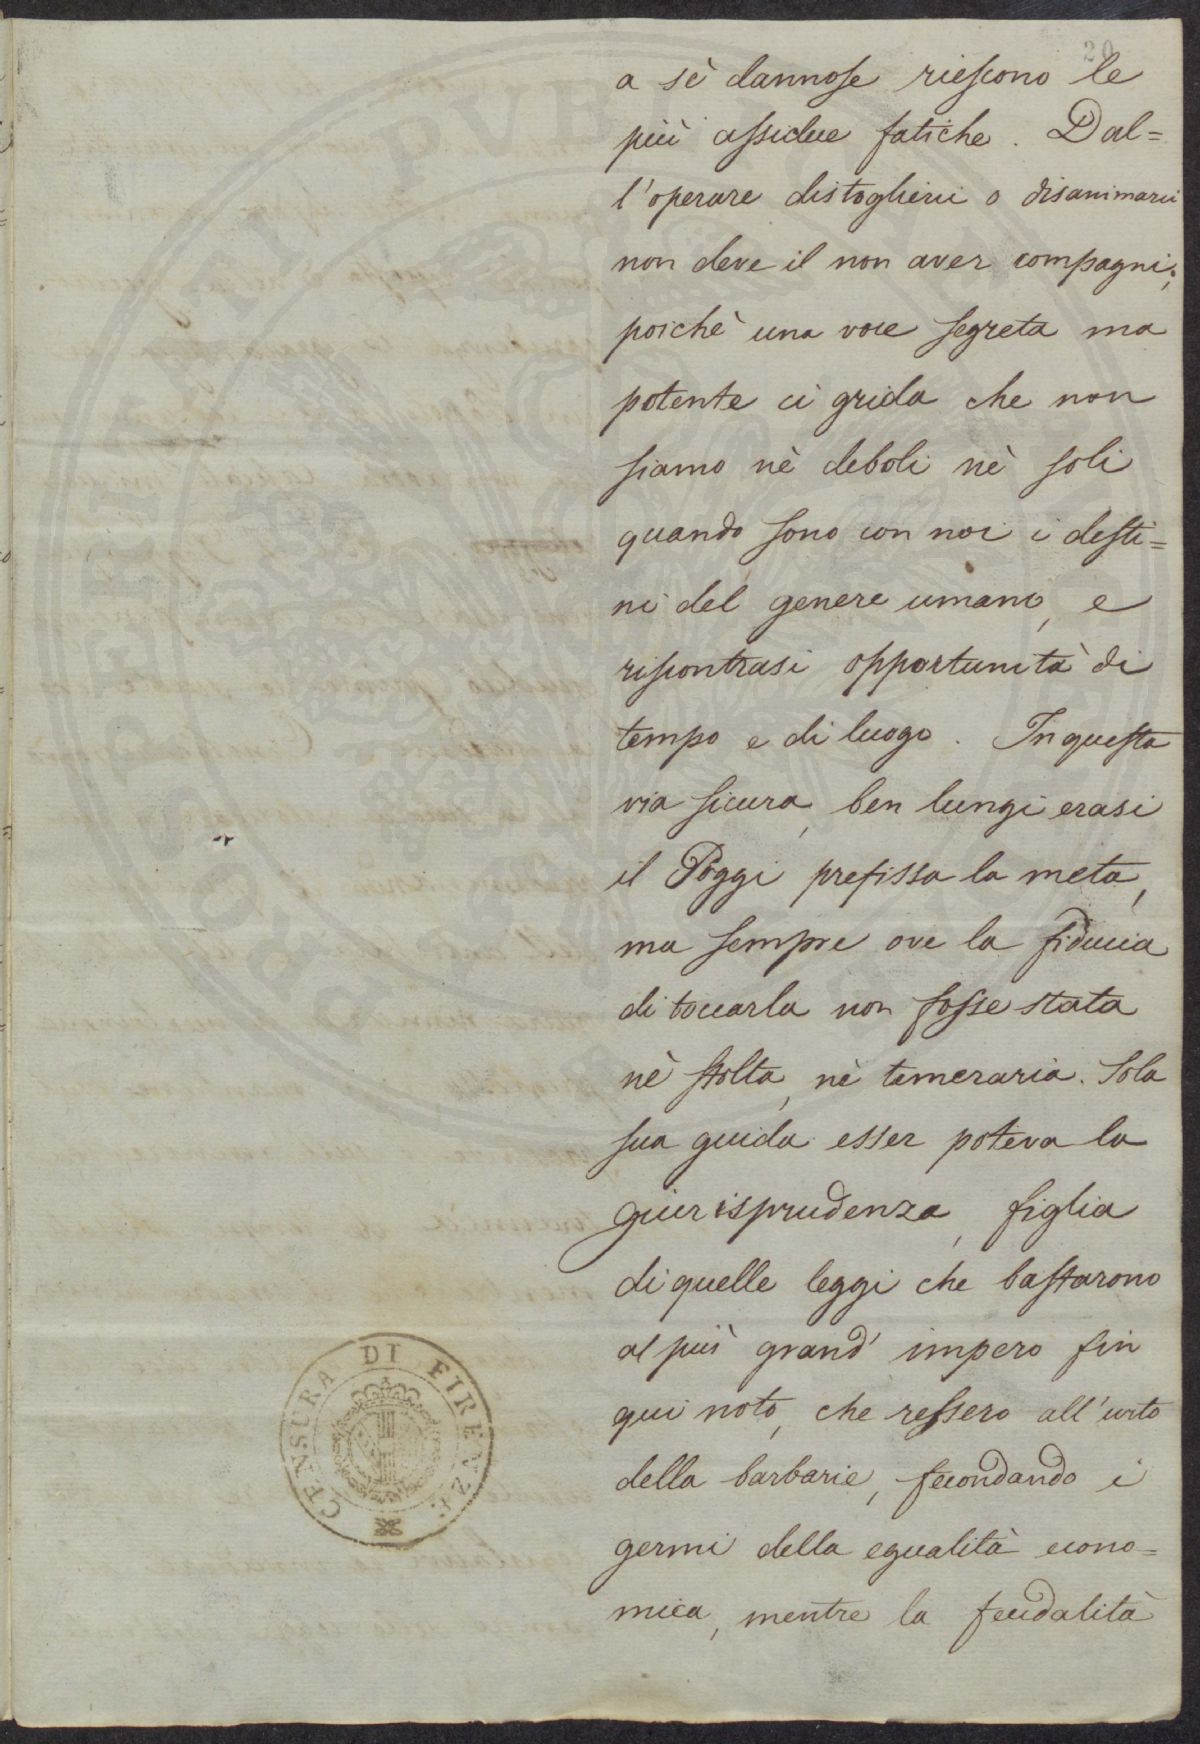 20
a sè dannose riescono le
più assidue fatiche. Dal=
l'operare distoglierci o disanimarci
non deve il non aver compagni;
poichè una voce segreta ma
potente ci grida che non
siamo nè deboli nè soli
quando sono con noi i desti=
ni del genere umano, e
riscontrasi opportunità di
tempo e di luogo. In questa
via sicura, ben lungi erasi
il Poggi prefissa la meta,
ma sempre ove la fiducia
di toccarla non fosse stata
nè stolta, nè temeraria. Sola
sua guida esser poteva la
giurisprudenza, figlia
di quelle leggi che bastarono
al più grand' impero fin
qui noto, che ressero all'urto
della barbarie, fecondando i
germi della egualità econo=
mica, mentre la feudalità
CENSURA DI FIRENZE